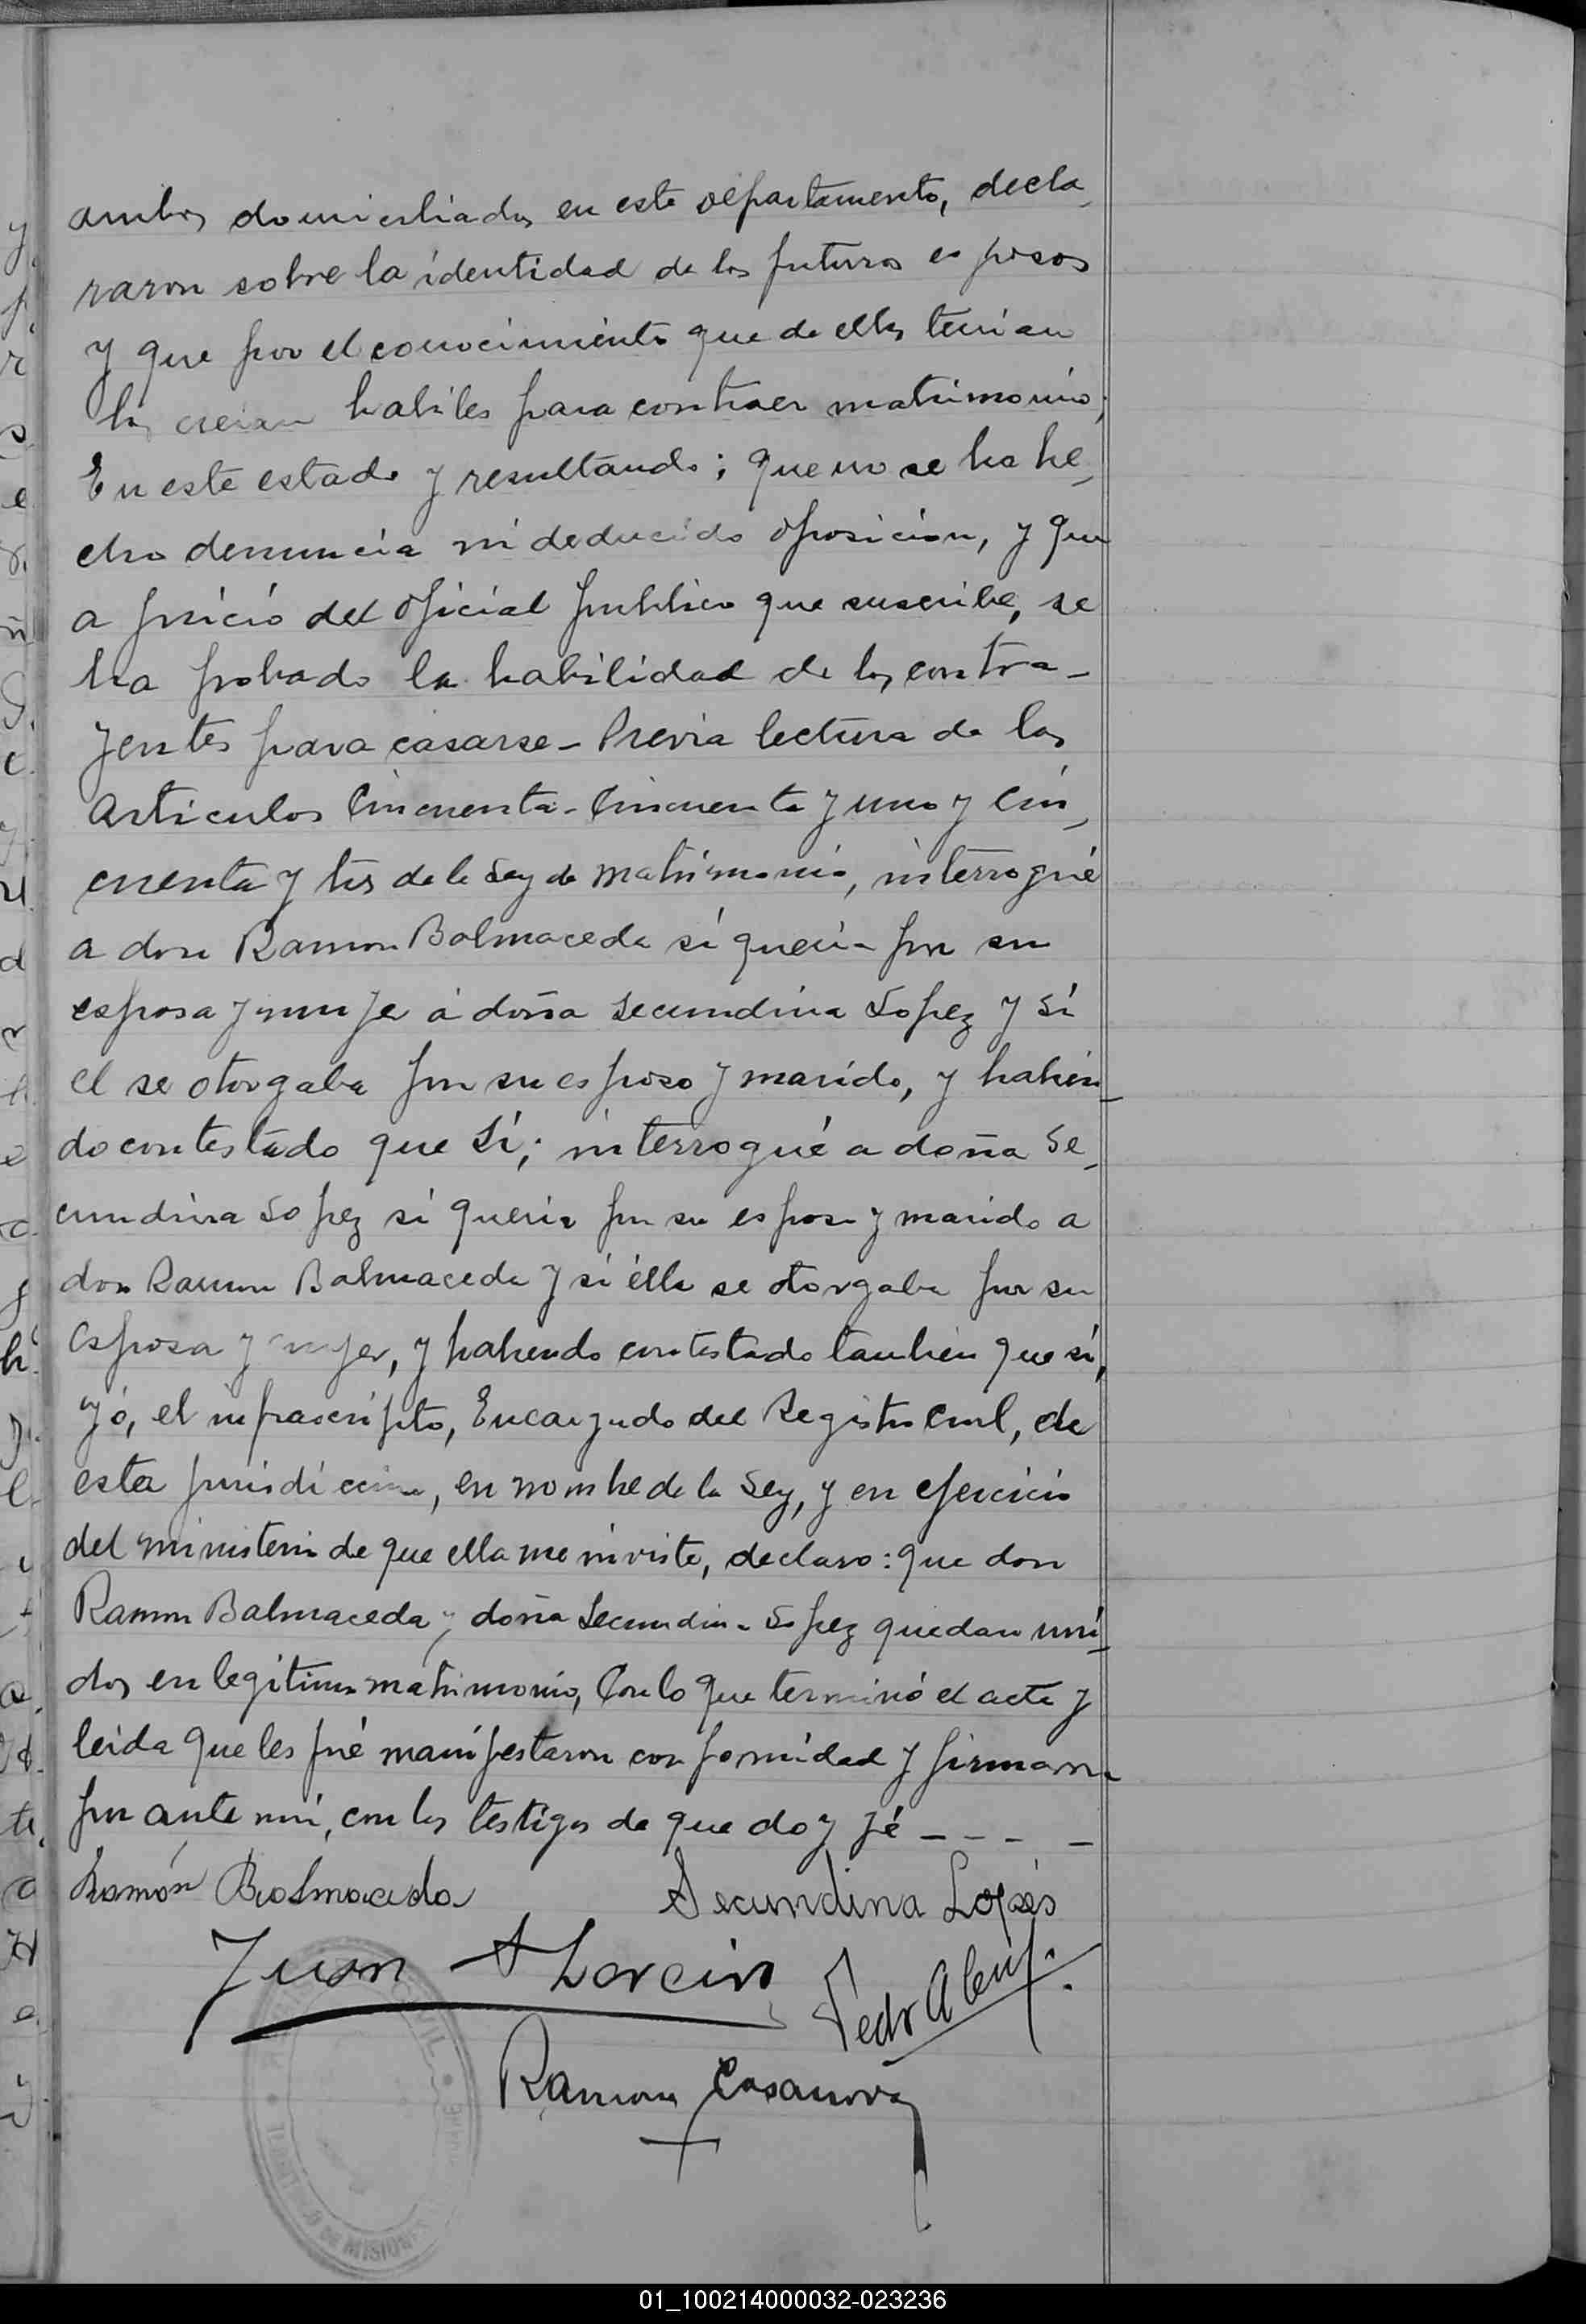 ambos domiciliados en este departamento, decla-
raron sobre la identidad de los futuros esposos
y que por el conocimiento que de ellos tenian
los creian habiles para contraer matrimonio;
En este estado y resultando; que no se ha he-
cho denuncia ni deducido oposicion, y que
a juicio del oficial publico que suscribe, se
ha probado la habilidad de los contra-
yentes para casarse - Previa lectura de los
articulos Cincuenta - Cincuenta y uno y Cin-
cuenta y tres de la Ley de Matrimonio, interrogué
a don Ramon Balmaceda si queria por su
esposa y mujer á doña Secundina Lopez y si
el se otorgaba por su esposo y marido, y habien-
do contestado que Sí; interrogué a doña Se-
cundina Lopez si queria por su esposo y marido a
don Ramon Balmaceda y si élla se otorgaba por su
esposa y mujer, y habiendo contestado tambien que sí,
yó, el infrascripto, Encargado del Registro Civil, de
esta jurisdiccion, en nombre de la Ley, y en ejercicio
del ministerio de que ella me inviste, declaro: que don
Ramon Balmaceda y doña Secundina Lopez quedan uni-
dos en legitimo matrimonio, Con lo que terminó el acta y
leida que les fué manifestaron conformidad y firmaron
por ante mi, con los testigos de que doy fé - - - -
Ramón Balmaceda Secundina Lopes
Juan Pedro
Ramon Casanova
CIVIL
DE MISIONES
01_100214000032-023236